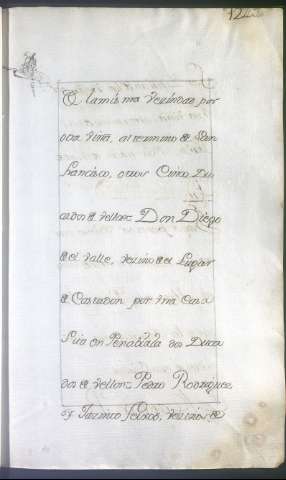 de la misma Vezindad por
otra viña, al termino de San
Francisco, otros Cinco Du
cados de vellon: Don Diego
de el Valle, vecino de el Lugar
de Castadon por Vna Casa
Sita en Peñabiada dos Duca
dos de vellon: Pedro Rodriguez
vecino de